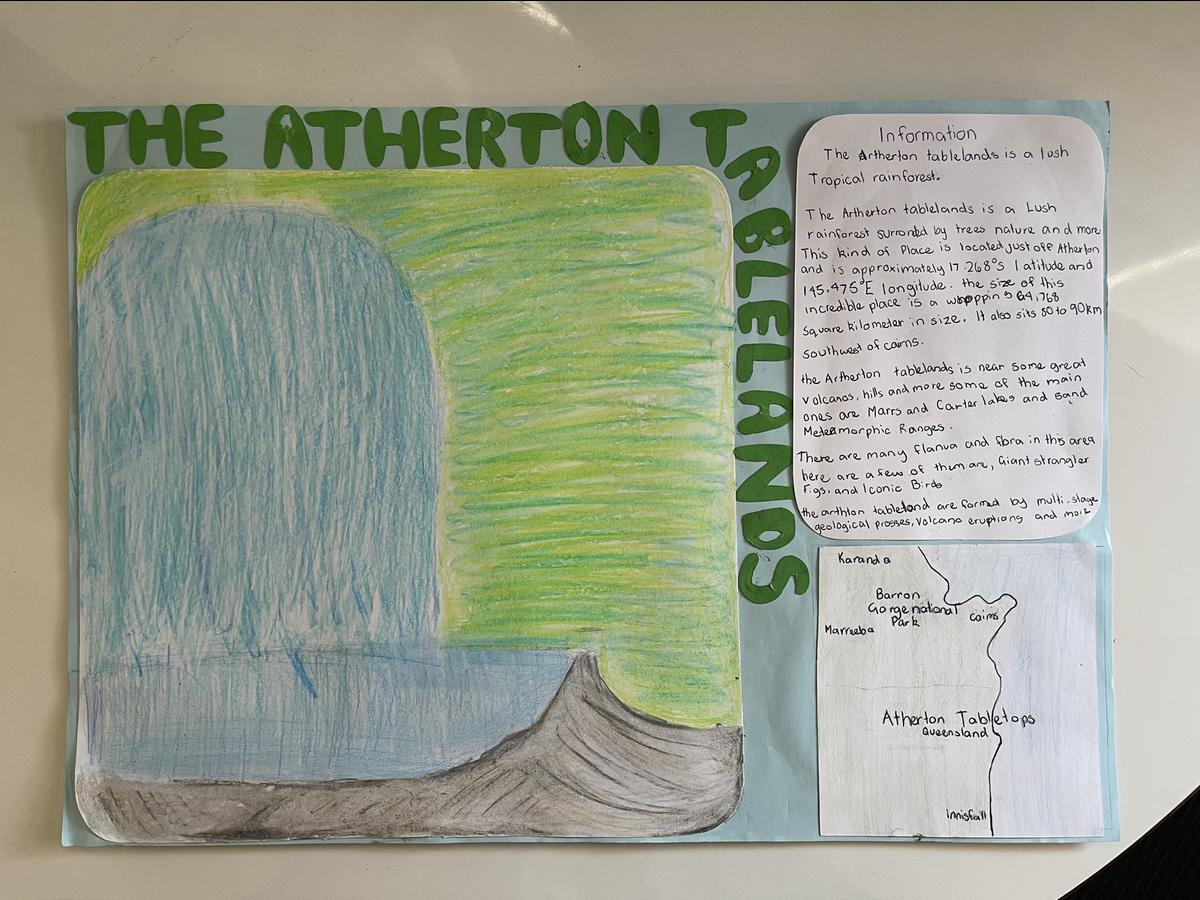 THE ATHERTON TABLELANDS
Information
The Artherton tablelands is a lush
Tropical rainforest.
The Artherton tablelands is a Lush
rainforest surronded by trees nature and more
This kind of Place is located just off Atherton
and is approximately 17.268°s latitude and
145,475°E longitude. the size of this
incredible place is a whopping 64,768
Square kilometer in size. It also sits 80 to 90km
southwest of cairns.
the Artherton tablelands is near some great
Volcanos, hills and more some of the main
ones are Marrs and Carter lakes and sand
Metamorphic Ranges.
There are many flanua and fbra in this area
here are a few of them are, Giant strangler
Figs, and Iconic Birds
the arthlon tableland are formed by multi-stage
geological prosses, Volcano eruptions and
Karanda
Barron
Gorge national
Park
Cairns
Marreeba
Atherton Tabletops
Queensland
Innisfall